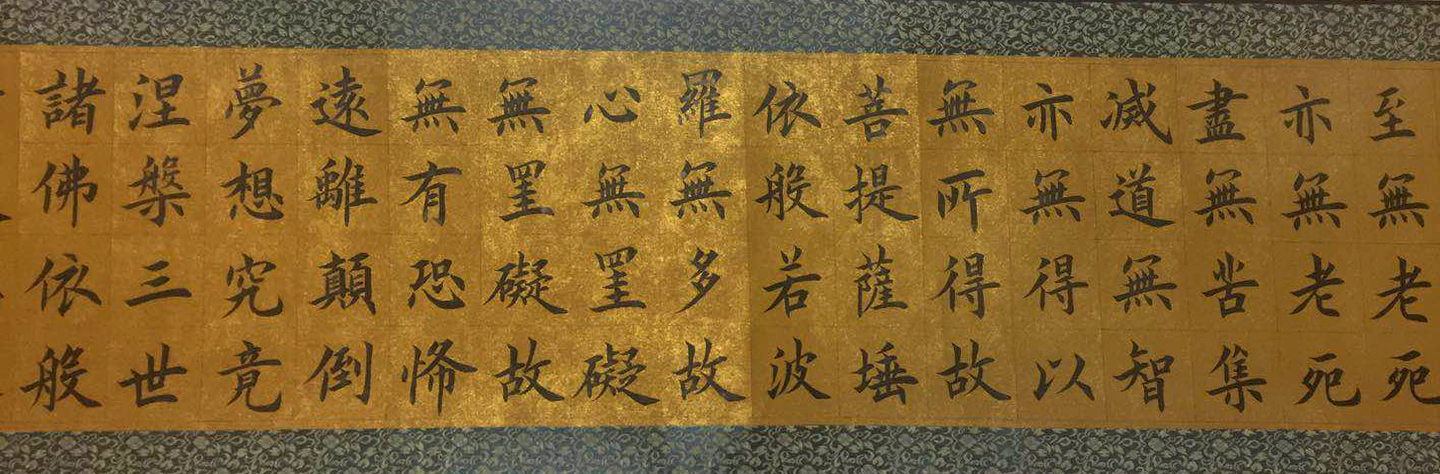 至無老死
亦無老死
盡無苦集
滅道無智
亦無得以
無所得故
菩提薩埵
依般若波
羅無多故
心無罣礙
無罣礙故
無有恐怖
遠離顛倒
夢想究竟
涅槃三世
諸佛依般